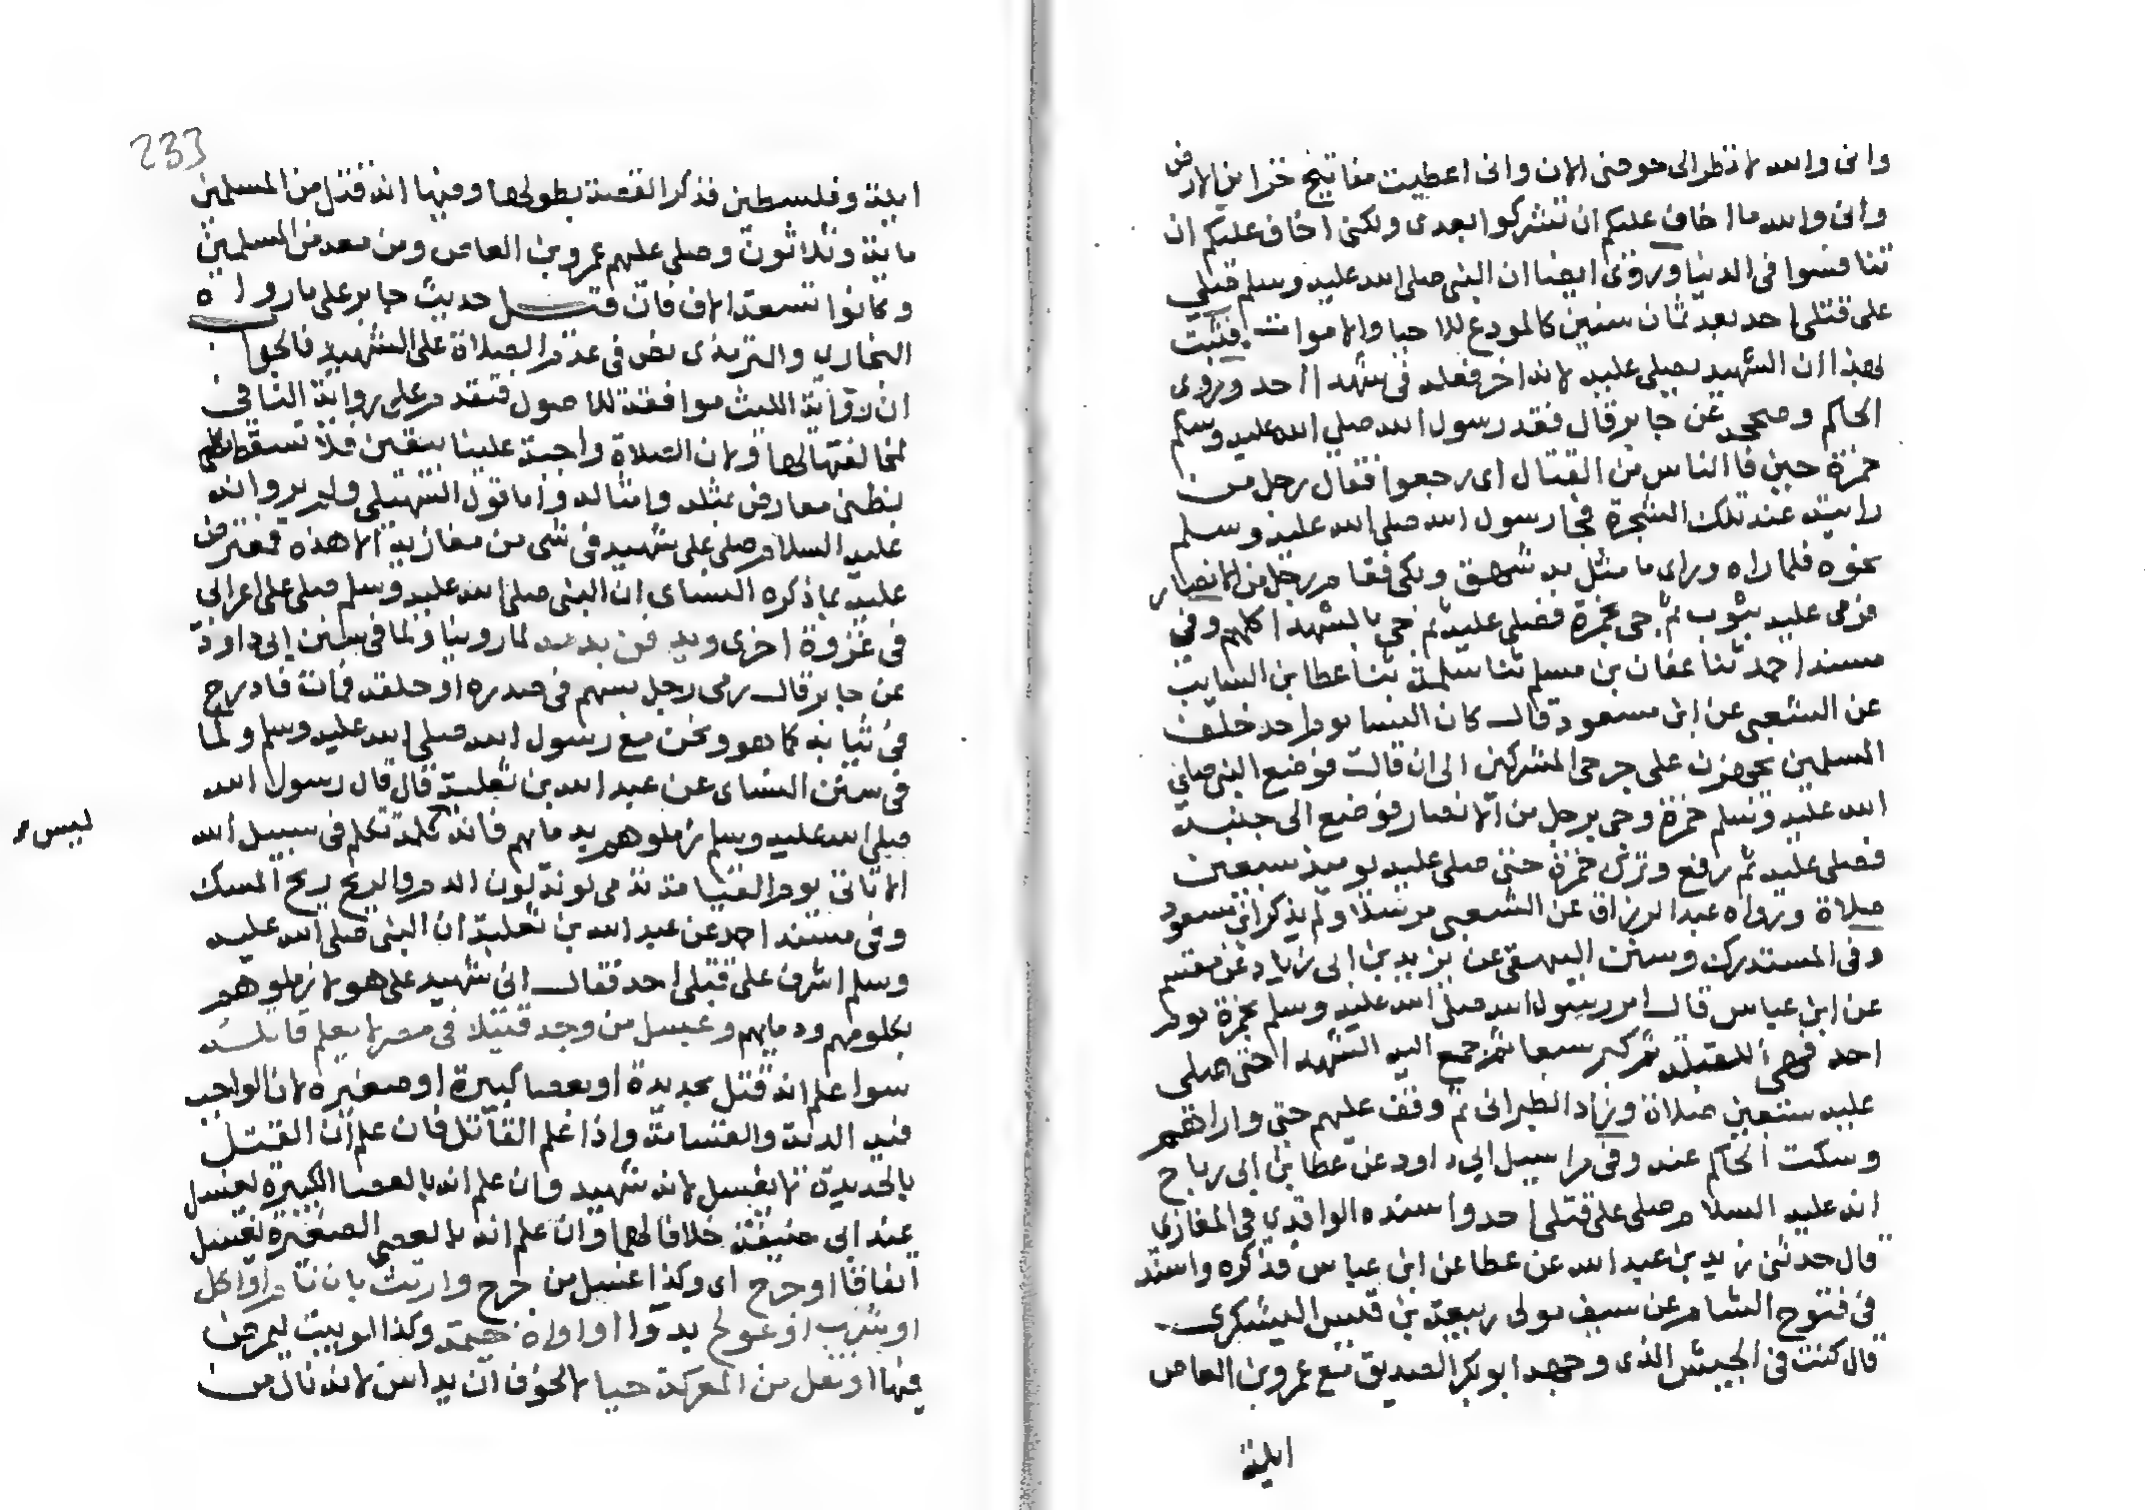 واني والله لانظر الى حوضي الان واني اعطيت مفاتيح خزاين الارض
واني والله ما اخاف عليكم ان تشركوا بعدي ولكني اخاف عليكم ان
تنافسوا في الدنيا وروى ايضا ان النبي صلى الله عليه وسلم صلى
على قتلى احد بعد ثمان سنين كالمودع للاحيا والاموات فثبت
بهذا ان الشهيد يصلى عليه لانه اخر فعله في شهدا احد وروى
الحاكم وصححه عن جابر قال فقد رسول الله صلى الله عليه وسلم
حمزة حين فا الناس من القتال اي رجعوا فقال رجل من
رايته عند تلك الشجرة فجا رسول الله صلى الله عليه وسلم
نحوه فلما راه وراى ما مثل به شهق وبكى فقام رجل من الانصار
فرمى عليه بثوب ثم جي بحمزة فصلى عليه ثم جي بالشهدا كلهم وفي
مسند احمد ثنا عفان بن مسلم ثنا سلمة ثنا عطا بن السايب
عن الشعبي عن ابن مسعود قال كان النسا يوم احد خلف
المسلمين يجهزن على جرحى المشركين الى ان قالت فوضع النبي صلى
الله عليه وسلم حمزة وجي برجل من الانصار فوضع الى جنبه
فصلى عليه ثم رفع وترك حمزة حتى صلى عليه يوميذ سبعين
صلاة ورواه عبد الرزاق عن الشعبي مرسلا ولم يذكر ابن مسعود
وفي المستدرك وسنن البيهقي عن يزيد بن ابي زياد عن مقسم
عن ابن عباس قال امر رسول الله صلى الله عليه وسلم بحمزة يوم
احد فهي للقبلة ثم كبر سبعا ثم جمع اليه الشهدا حتى صلى
عليه سبعين صلاة وزاد الطبراني ثم وقف عليهم حتى واراهم
وسكت الحاكم عنه وفي مراسيل ابي داود عن عطا بن ابي رباح
انه عليه السلام صلى على قتلى احد واسنده الواقدي في المغازي
قال حدثني زيد بن عبد الله عن عطا عن ابن عباس فذكره واسند
في فتوح الشام عن سيف مولى ربيعة بن قيس اليشكري
قال كنت في الجيش الذي وجهه ابو بكر الصديق مع عمرو بن العاص
ايلة
233
ايلة وفلسطين فذكر القصة بطولها وفيها انه قتل من المسلمين
ماية وثلاثون وصلى عليهم عمرو بن العاص ومن معه من المسلمين
وكانوا تسعة الاف فان قتل حديث جابر على ما رواه
البخاري والترمذي نص في عدم الصلاة على الشهيد فالجواب
ان رواية الليث موافقة للاصول فتقدم على رواية النافي
لمخالفتها لها ولان الصلاة واجبة علينا بيقين فلا تسقط
بظني معارض بمثله وامثاله واما قول السهيلي ولم يرو انه
عليه السلام صلى على شهيد في شي من مغازيه الا هذه فمعترض
عليه بما ذكره النساي ان النبي صلى الله عليه وسلم صلى على اعرابي
في غزوة اخرى لما روينا ولما في سنن ابي داود
عن جابر قال رمي رجل بسهم في صدره او حلقه فمات فادرج
في ثيابه كما هو ونحن مع رسول الله صلى الله عليه وسلم ولما
في سنن النساي عن عبد الله بن ثعلبة قال قال رسول الله
صلى الله عليه وسلم زملوهم بدمايهم فانه كلمة تكلم في سبيل الله
ليس
الا تاتي يوم القيامة تدمي لونه لون الدم والريح ريح المسك
وفي مسند احمد عن عبد الله بن ثعلبة ان النبي صلى الله عليه
وسلم اشرف على قتلى احد فقال اني شهيد على هولا زملوهم
بكلومهم ودمايهم وغسل من وجد قتيلا في مصر لا يعلم قاتله
سوا علم انه قتل بحديدة او بعصا كبيرة او صغيرة لان الواجب
فيه الدية والقسامة واذا علم القاتل فان علم ان القتل
بالحديدة لا يغسل لانه شهيد وان علم انه بالعصا الكبيرة يغسل
عند ابي حنيفة خلافا لهما وان علم انه بالعصى الصغيرة يغسل
اتفاقا او جرح اي وكذا غسل من جرح وارتث بان نام او اكل
او شرب او عولج بدوا او اواه خيمة وكذا البيت ليمرض
فيها او نقل من المعركة حيا لا لخوف ان يداس لانه نال من